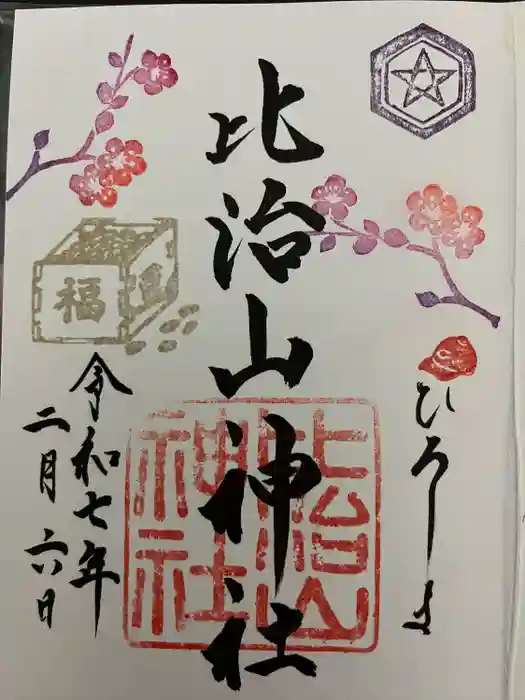 ひろしま
比治山神社
比治山
神社
令和七年
二月六日
福